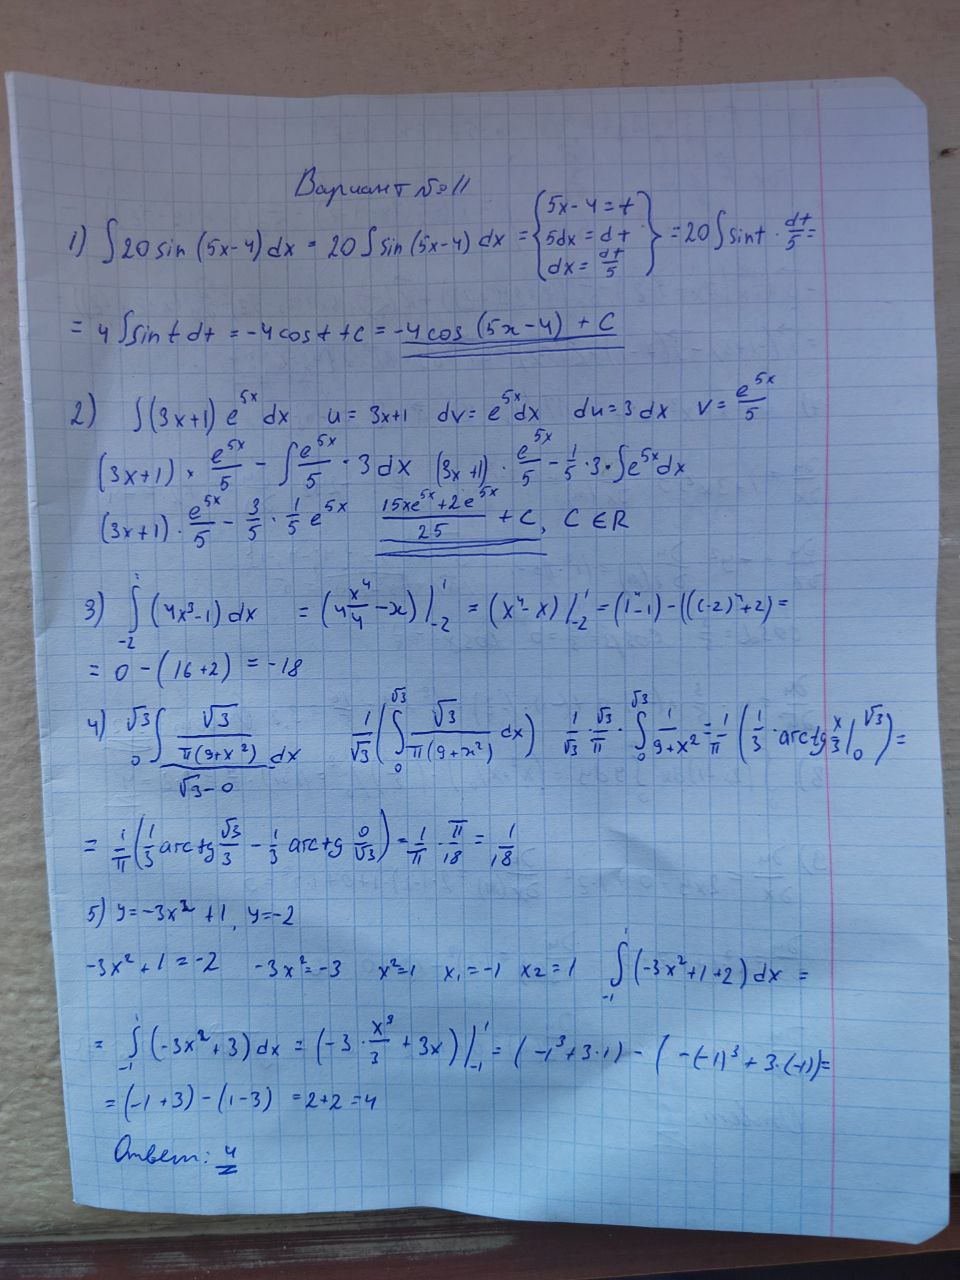 Вариант №11
1) ∫20 sin (5x-4) dx = 20 ∫ sin (5x-4) dx = {5x-4=t 5dx=dt dx=dt/5} = 20 ∫ sint · dt/5 =
= 4 ∫ sin t dt = -4 cos t + C = -4 cos (5x-4) + C
2) ∫(3x+1) e^5x dx u = 3x+1 dv = e^5x dx du = 3 dx v = e^5x/5
(3x+1) · e^5x/5 - ∫ e^5x/5 · 3 dx (3x+1) · e^5x/5 - 1/5 · 3 · ∫ e^5x dx
(3x+1) · e^5x/5 - 3/5 · 1/5 e^5x (15xe^5x+2e^5x)/25 + C, C ∈ R
3) ∫_-2^1 (4x³-1) dx = (4 x⁴/4 - x) |_-2^1 = (x⁴-x) |_-2^1 = (1⁴-1) - ((-2)⁴+2) =
= 0 - (16+2) = -18
4) (∫_0^√3 √3/(π(9+x²)) dx)/(√3-0) 1/√3 (∫_0^√3 √3/(π(9+x²)) dx) 1/√3 · √3/π · ∫_0^√3 1/(9+x²) = 1/π (1/3 · arctg x/3 |_0^√3) =
= 1/π (1/3 arctg √3/3 - 1/3 arctg 0/√3) = 1/π · π/18 = 1/18
5) y=-3x²+1, y=-2
-3x²+1=-2 -3x²=-3 x²=1 x₁=-1 x2=1 ∫_-1^1 (-3x²+1+2) dx =
= ∫_-1^1 (-3x²+3) dx = (-3 · x³/3 + 3x) |_-1^1 = (-1³+3·1) - (-(-1)³+3·(-1)) =
= (-1+3) - (1-3) = 2+2 = 4
Ответ: 4